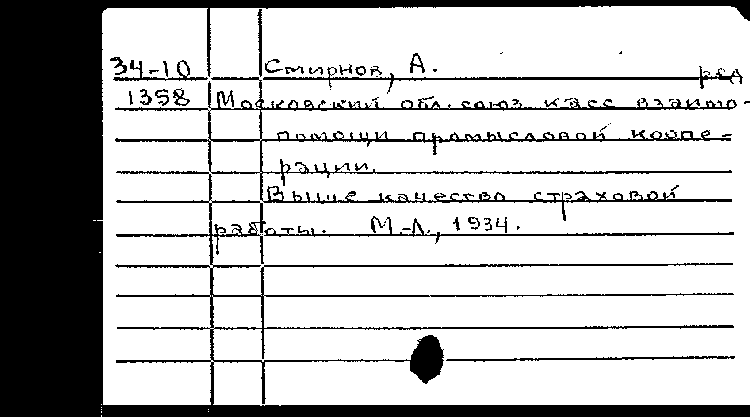 34-10 Смирнов, А. ред
1358 Московский обл. союз касс взаимо-
помощи промысловой коопе-
рации.
Выше качество страховой
работы. М.-Л., 1934.